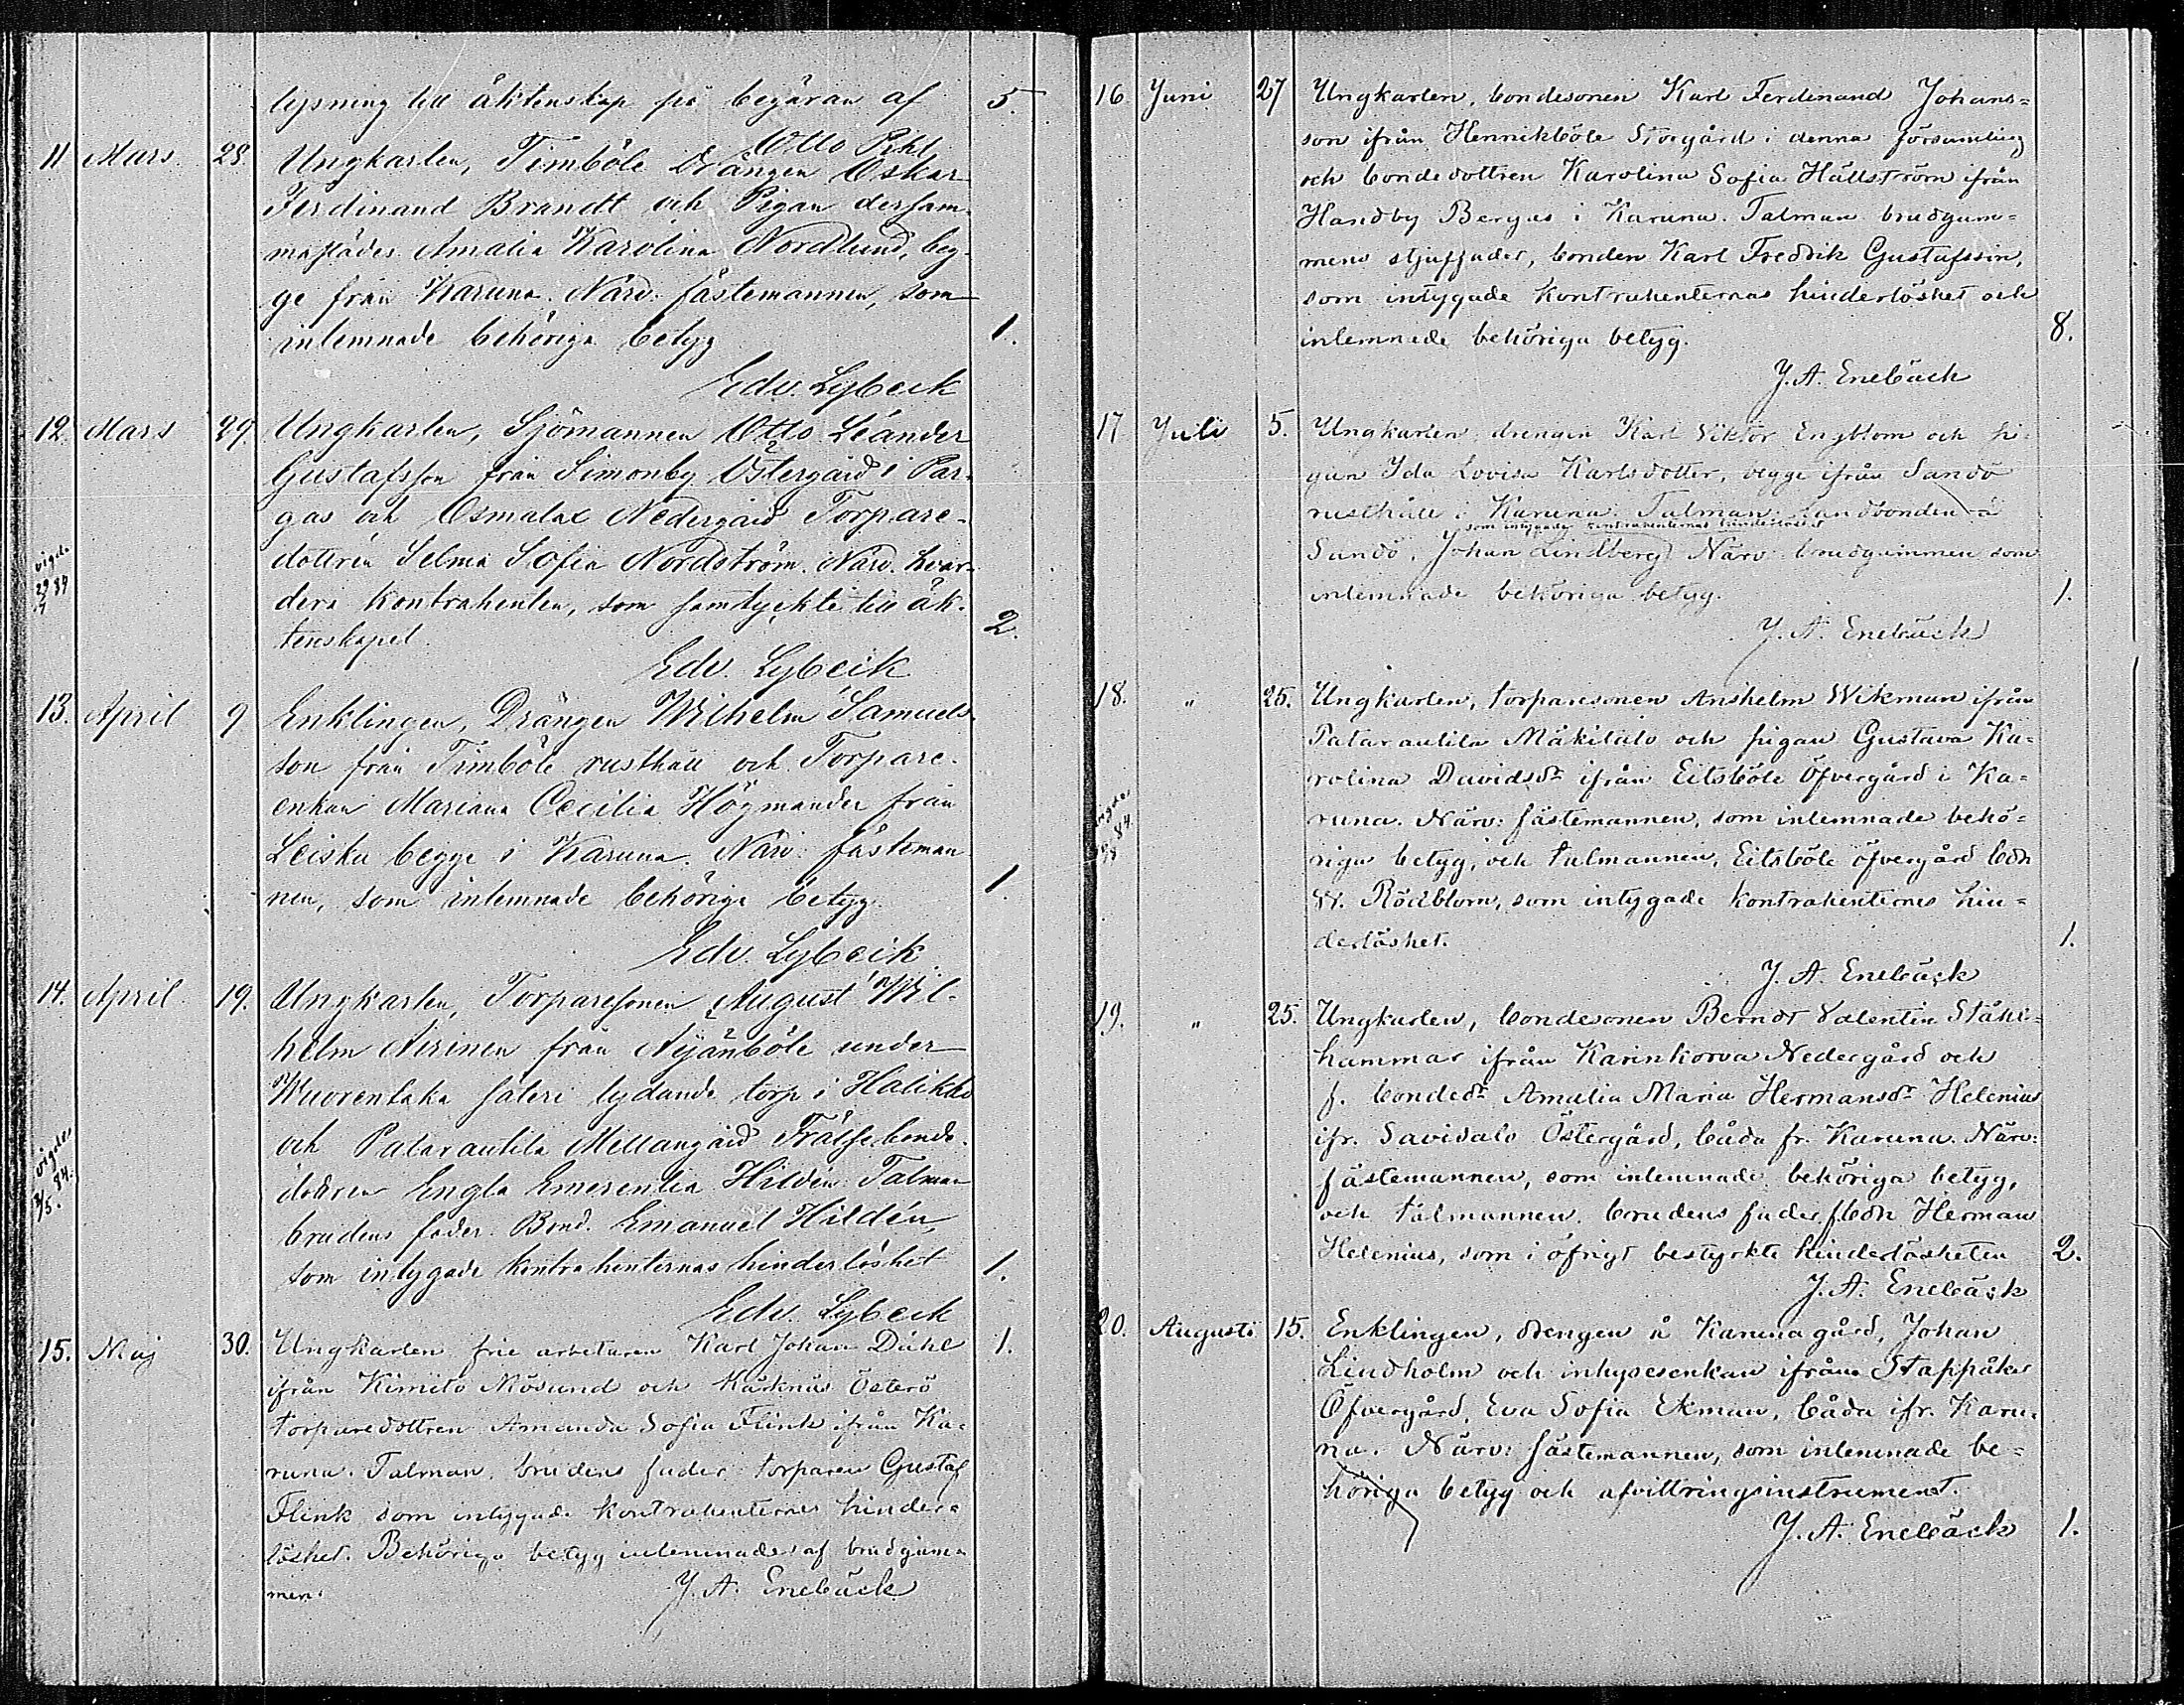 lysning till äktenskap på begäran af 5.
Otto Pihl
11 Mars. 28. Ungkarlen, Timböle Drängen Oskar
Ferdinand Brandt och Pigan dersam-
mastädes Amalia Karolina Nordlund, beg-
ge från Karuna. Närv. fästemannen, som
inlemnade behöriga betyg 1.
Edv. Lybeck
12. Mars 29. Ungkarlen, Sjömannen Otto Leander
Gustafsson från Simonby Östergård i Par-
gas och Osmalax Nedergård Torpare-
dottren Selma Sofia Nordström. Närv. hvar-
vigde 29/7 84
dera kontrahenten, som samtyckte till äk-
tenskapet. 2.
Edv. Lybeck
13. April 9 Enklingen, Drängen Wilhelm Samuels-
son från Timböle rusthåll och Torpare-
enkan Mariana Cecilia Högmander från
Leisku begge i Karuna. Närv. fästeman
nen, som inlemnade behöriga betyg. 1.
Edv. Lybeck
14. April 19. Ungkarlen, Torparesonen August Wil-
helm Nirinen från Nyänböle under
Wuorentaka säteri lydande torp i Halikko
och Patarautila Mellangård Frälsebonde-
vigdes /5. 84.
dottren Engla Emerentia Hildén. Talman
brudens fader Bond. Emanuel Hildén,
som intygade kontrahenternas hinderlöshet 1.
Edv. Lybeck
15. Maj 30. Ungkarlen frie arbetaren Karl Johan Dahl 1.
ifrån Kimito Mösund och Kärknäs Österö
torparedottren Amanda Sofia Flink ifrån Ka-
runa. Talman, brudens fader torparen Gustaf
Flink som intygade kontrahenternes hinder-
löshet. Behöriga betyg inlemnades af brudgum-
men. J. A. Enebäck
16 Juni 27 Ungkarlen, bondesonen Karl Ferdinand Johans=
son ifrån Henrikböle Storgård i denna församling
och bondedottren Karolina Sofia Hällström ifrån
Handby Bergas i Karuna. Talman brudgum=
mens stjuffader, bonden Karl Fredrik Gustafsson,
som intygade kontrahenternas hinderlöshet och
inlemnade behöriga betyg. 8.
J. A. Enebäck
17 Juli 5. Ungkarlen, drengen Karl Viktor Engblom och pi-
gan Ida Lovisa Karlsdotter, begge ifrån Sandö
rusthåll i Karuna. Talman: landbonden å
som intygade kontrahenternas hinderlöshet
Sandö, Johan Lindberg. Närv. brudgummen som
inlemnade behöriga betyg. 1.
J. A. Enebäck
18. " 25. Ungkarlen, torparesonen Anshelm Wikman ifrån
Patarautila Mäkitalo och pigan Gustava Ka=
rolina Davidsdr ifrån Eitsböle Öfvergård i Ka=
vigdes 84.
runa. Närv: fästemannen, som inlemnade behö=
riga betyg, och talmannen, Eitsböle öfvergård bdn
W. Rödblom, som intygade kontrahenternes hin=
derlöshet. 1.
J. A. Enebäck
19. " 25. Ungkarlen, bondesonen Berndt Valentin Ståhl=
hammar ifrån Karinkorva Nedergård och
f. bondedr Amalia Maria Hermansdr Helenius
ifr. Savisalo Östergård, båda fr. Karuna. Närv:
fästemannen, som inlemnade behöriga betyg,
och talmannen, brudens fader, f. bdn Herman
Helenius, som i öfrigt bestyrkte hinderlösheten 2.
J. A. Enebäck
20. Augusti 15. Enklingen, drengen å Karuna gård, Johan
Lindholm och inhysesenkan ifrån Stappåker
Öfvergård, Eva Sofia Ekman, båda ifr. Karu-
na. Närv: fästemannen, som inlemnade be=
höriga betyg och afvittringsinstrument.
J. A. Enebäck 1.